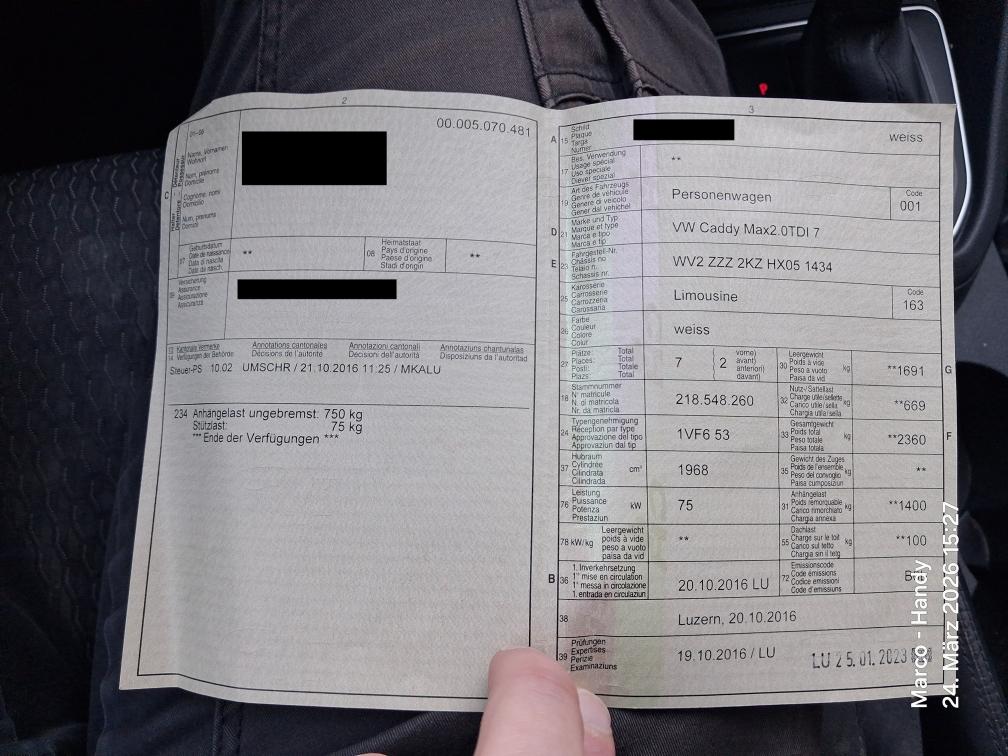 2
00.005.070.481
C
Name, Vornamen
Wohnort
Nom, prénoms
Domicile
Cognome, nomi
Domicilio
Num, prenums
Domicil
07 Geburtsdatum
Date de naissance
Data di nascita
Data da nasch.
**
08 Heimatstaat
Pays d'origine
Paese d'origine
Stadi d'origin
**
09 Versicherung
Assurance
Assicurazione
Assicuranza
Kantonale Vermerke
Verfügungen der Behörde
Annotations cantonales
Décisions de l'autorité
Annotazioni cantonali
Decisioni dell'autorità
Annotaziuns chantunalas
Disposiziuns da l'autoritad
Steuer-PS 10.02 UMSCHR / 21.10.2016 11:25 / MKALU
234 Anhängelast ungebremst: 750 kg
Stützlast: 75 kg
*** Ende der Verfügungen ***
3
A 15 Schild
Plaque
Targa
Numer
weiss
17 Bes. Verwendung
Usage spécial
Uso speciale
Diever spezial
**
19 Art des Fahrzeugs
Genre de véhicule
Genere di veicolo
Gener dal vehichel
Personenwagen
Code
001
D 21 Marke und Typ
Marque et type
Marca e tipo
Marca e tip
VW Caddy Max2.0TDI 7
E 23 Fahrgestell-Nr.
Châssis no
Telaio n.
Schassis nr.
WV2 ZZZ 2KZ HX05 1434
25 Karosserie
Carrosserie
Carrozzeria
Carossaria
Limousine
Code
163
26 Farbe
Couleur
Colore
Colur
weiss
27 Plätze: Total
Places: Total
Posti: Totale
Plazs: Total
7
2
vorne)
avant)
anteriori)
davant)
30 Leergewicht
Poids à vide
Peso a vuoto
Paisa da vid
kg
**1691
G
18 Stammnummer
N° matricule
N. di matricola
Nr. da matricla
218.548.260
32 Nutz-/Sattellast
Charge utile/sellette
Carico utile/sella
Chargia utila/sella
kg
**669
24 Typengenehmigung
Réception par type
Approvazione del tipo
Approvaziun dal tip
1VF6 53
33 Gesamtgewicht
Poids total
Peso totale
Paisa totala
kg
**2360
F
37 Hubraum
Cylindrée
Cilindrata
Cilindrada
cm³
1968
35 Gewicht des Zuges
Poids de l'ensemble
Peso del convoglio
Paisa cumposiziun
kg
**
76 Leistung
Puissance
Potenza
Prestaziun
kW
75
31 Anhängelast
Poids remorquable
Carico rimorchiato
Chargia annexa
kg
**1400
78 kW/kg Leergewicht
poids à vide
peso a vuoto
paisa da vid
**
55 Dachlast
Charge sur le toit
Carico sul tetto
Chargia sin il tetg
kg
**100
B 36 1. Inverkehrsetzung
1re mise en circulation
1a messa in circolazione
1. entrada en circulaziun
20.10.2016 LU
72 Emissionscode
Code émissions
Codice emissioni
Code d'emissiuns
38 Luzern, 20.10.2016
39 Prüfungen
Expertises
Perizie
Examinaziuns
19.10.2016 / LU
LU 25.01.2023
P
Marco - Handy
24. März 2026 15:27